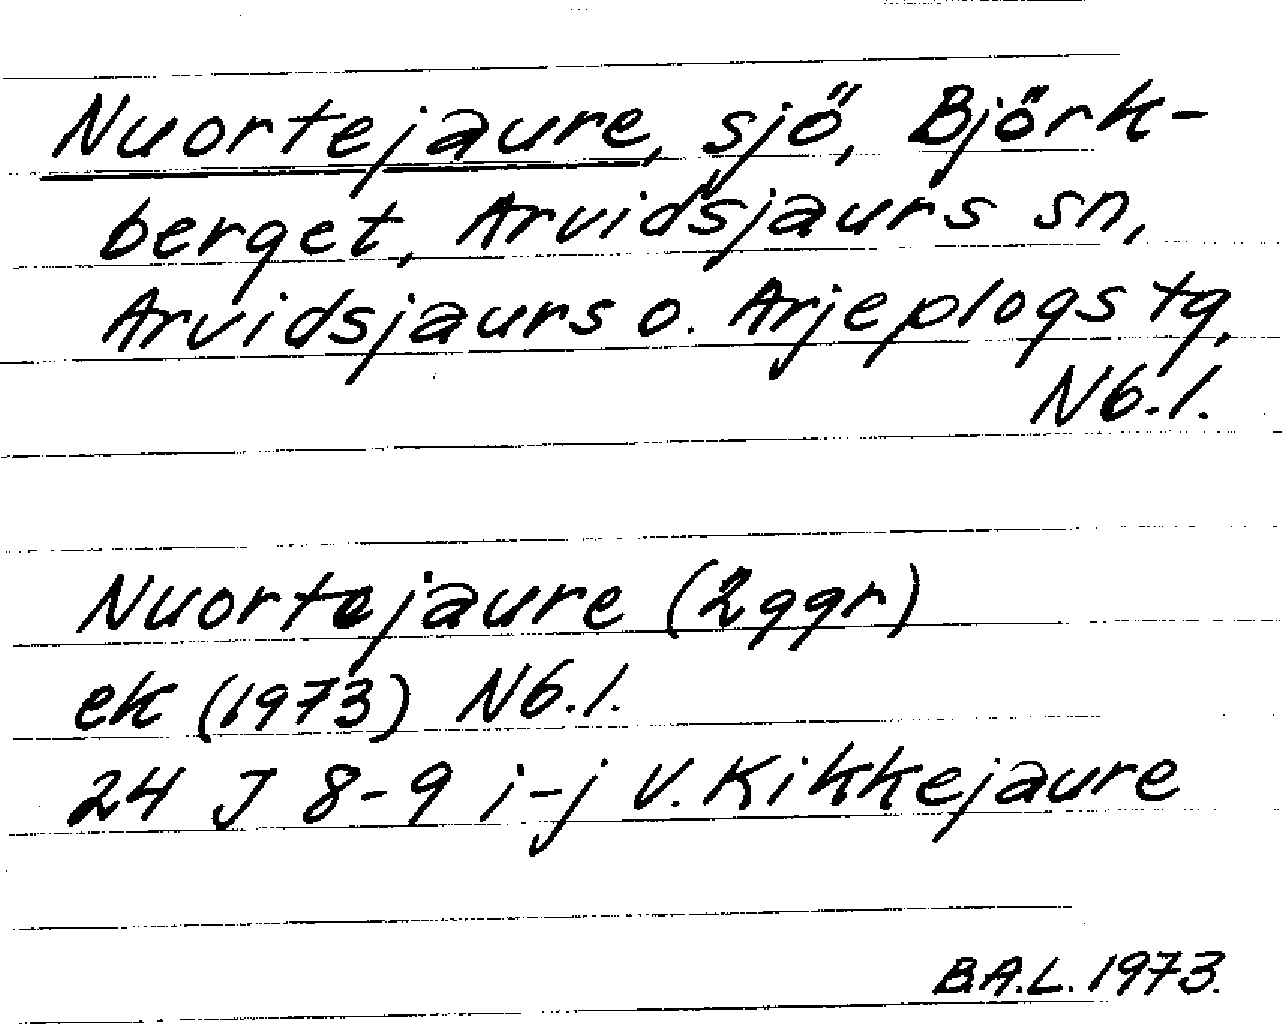 Nuortejaure, sjö, Björk-
berget, Arvidsjaurs sn,
Arvidsjaurs o. Arjeplogs tg,
Nb.l.
Nuortejaure (2ggr)
ek (1973) Nb.l.
24 J 8-9 i-j V. Kikkejaure
B.A.L. 1973.